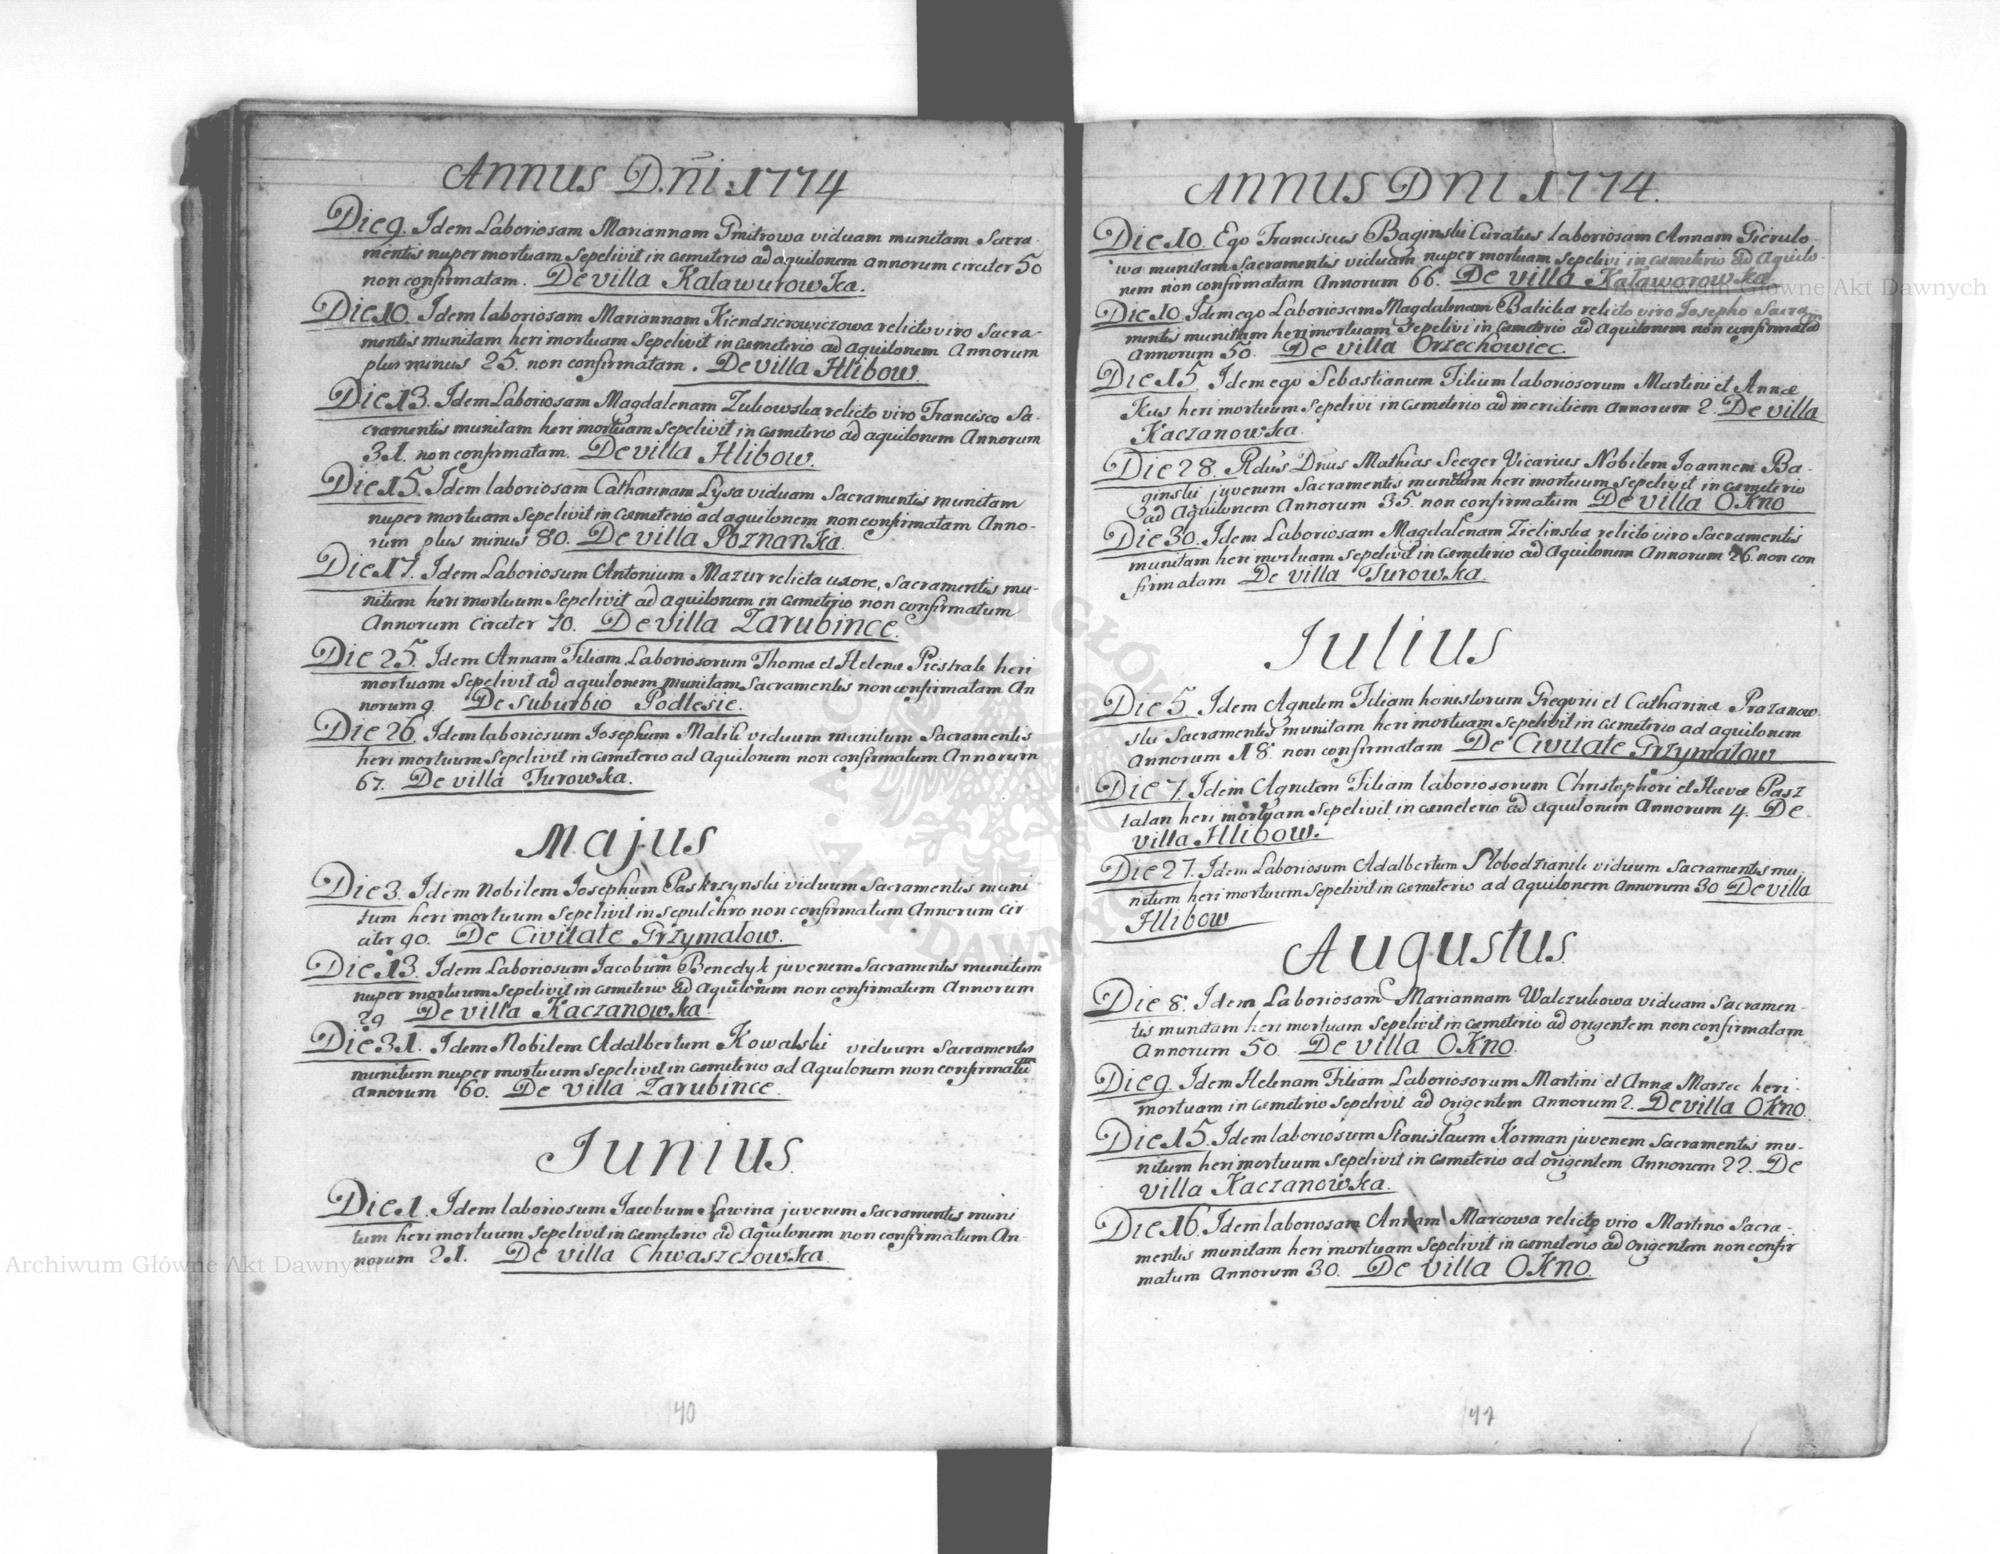 Annus Dñi: 1774
Die 9. Idem Laboriosam Mariannam Gmitrowa viduam munitam Sacra-
mentis nuper mortuam Sepelivit in cæmeterio ad aquilonem annorum circiter 50
non confirmatam. De villa Kaławurowka.
Die 10. Idem laboriosam Mariannam Kiendzierowiczowa relicto viro Sacra-
mentis munitam heri mortuam Sepelivit in cæmeterio ad aquilonem Annorum
plus minus 25. non confirmatam. De villa Hlibow.
Die 13. Idem Laboriosam Magdalenam Zukowska relicto viro Francisco Sa-
cramentis munitam heri mortuam Sepelivit in cæmeterio ad aquilonem Annorum
31. non confirmatam. De villa Hlibow.
Die 15. Idem laboriosam Catharinam Lysa viduam Sacramentis munitam
nuper mortuam Sepelivit in cæmeterio ad aquilonem non confirmatam Anno-
rum plus minus 80. De villa Poznanka.
Die 17. Idem Laboriosum Antonium Mazur relicta uxore, Sacramentis mu-
nitum heri mortuum Sepelivit ad aquilonem in cæmeterio non confirmatum
Annorum Circiter 70. De villa Zarubince.
Die 25. Idem Annam Filiam Laboriosorum Thomæ et Helenæ heri
mortuam Sepelivit ad aquilonem munitam Sacramentis non confirmatam An
norum 9. De Suburbio Podlesie.
Die 26. Idem laboriosum Iosephum viduum munitum Sacramentis
heri mortuum Sepelivit in Cæmeterio ad Aquilonem non confirmatum Annorum
67. De villa Turowka.
Majus
Die 3. Idem Nobilem Iosephum Paskrzynski viduum Sacramentis muni
tum heri mortuum Sepelivit in sepulchro non confirmatum Annorum cir-
citer 90. De Civitate Grzymałow.
Die 13. Idem Laboriosum Iacobum Benedyk juvenem Sacramentis munitum
nuper mortuum Sepelivit in cæmeterio ad Aquilonem non confirmatum Annorum
29 De villa Kaczanowka.
Die 31. Idem Nobilem Adalbertum Kowalski viduum Sacramentis
munitum nuper mortuum Sepelivit in cæmeterio ad Aquilonem non confirmatũ
Annorum 60. De villa Zarubince.
Iunius.
Die 1. Idem laboriosum Iacobum Sawina juvenem Sacramentis muni
tum heri mortuum Sepelivit in Cæmeterio ad Aquilonem non confirmatum An-
norum 21. De villa Chwaszczowka.
40
Annus Dni 1774.
Die 10. Ego Franciscus Baginski Curatus laboriosam Annam Gierulo-
wa munitam Sacramentis viduam nuper mortuam Sepelivi in cæmeterio ad Aquilo-
nem non confirmatam Annorum 66. De villa Kaławorowka
Die 10. Idem ego Laboriosam Magdalenam Balicka relicto viro Iosepho Sacra-
mentis munitam heri mortuam Sepelivi in Cæmeterio ad Aquilonem non confirmatã
Annorum 50. De villa Orzechowiec.
Die 15. Idem ego Sebastianum Filium laboriosorum Martini et Annæ
Kus heri mortuum Sepelivi in cæmeterio ad meridiem Annorum 2. De villa
Kaczanowka.
Die 28. Rdus Dnus Mathias Seeger Vicarius Nobilem Ioannem Ba-
ginski juvenem Sacramentis munitum heri mortuum Sepelivit in cæmeterio
ad Aquilonem Annorum 35. non confirmatum De villa Okno
Die 30. Idem Laboriosam Magdalenam Zielinska relicto viro Sacramentis
munitam heri mortuam Sepelivit in Cæmeterio ad Aquilonem Annorum 26. non con
firmatam De villa Turowka.
Iulius
Die 5. Idem Agnetem Filiam honestorum Gregorii et Catharinæ Prazanow
ski Sacramentis munitam heri mortuam Sepelivit in Cæmeterio ad aquilonem
Annorum 18. non confirmatam De Civitate Grzymałow
Die 7. Idem Agnetem Filiam laboriosorum Christophori et Hævæ Pasz
talan heri mortuam Sepelivit in cæmeterio ad Aquilonem Annorum 4. De
villa Hlibow.
Die 27. Idem Laboriosum Adalbertum Slobodzianik viduum Sacramentis mu
nitum heri mortuum Sepelivit in cæmeterio ad Aquilonem Annorum 30 De villa
Hlibow
Augustus.
Die 8. Idem Laboriosam Mariannam Walczukowa viduam Sacramen-
tis munitam heri mortuam Sepelivit in cæmeterio ad origentem non confirmatam
Annorum 50. De villa Okno.
Die 9. Idem Helenam Filiam Laboriosorum Martini et Annæ Marzec heri
mortuam in cæmeterio Sepelivit ad origentem Annorum 2. De villa Okno.
Die 15. Idem laboriosum Stanislaum Korman juvenem Sacramentis mu-
nitum heri mortuum Sepelivit in Cæmeterio ad origentem Annorum 22. De
villa Kaczanowka.
Die 16. Idem laboriosam Annam Marcowa relicto viro Martino Sacra-
mentis munitam heri mortuam Sepelivit in cæmeterio ad origentem non confir
matum Annorum 30. De villa Okno.
41
Archiwum Główne Akt Dawnych
Archiwum Główne Akt Dawnych
ARCHIWUM GŁÓWNE AKT DAWNYCH